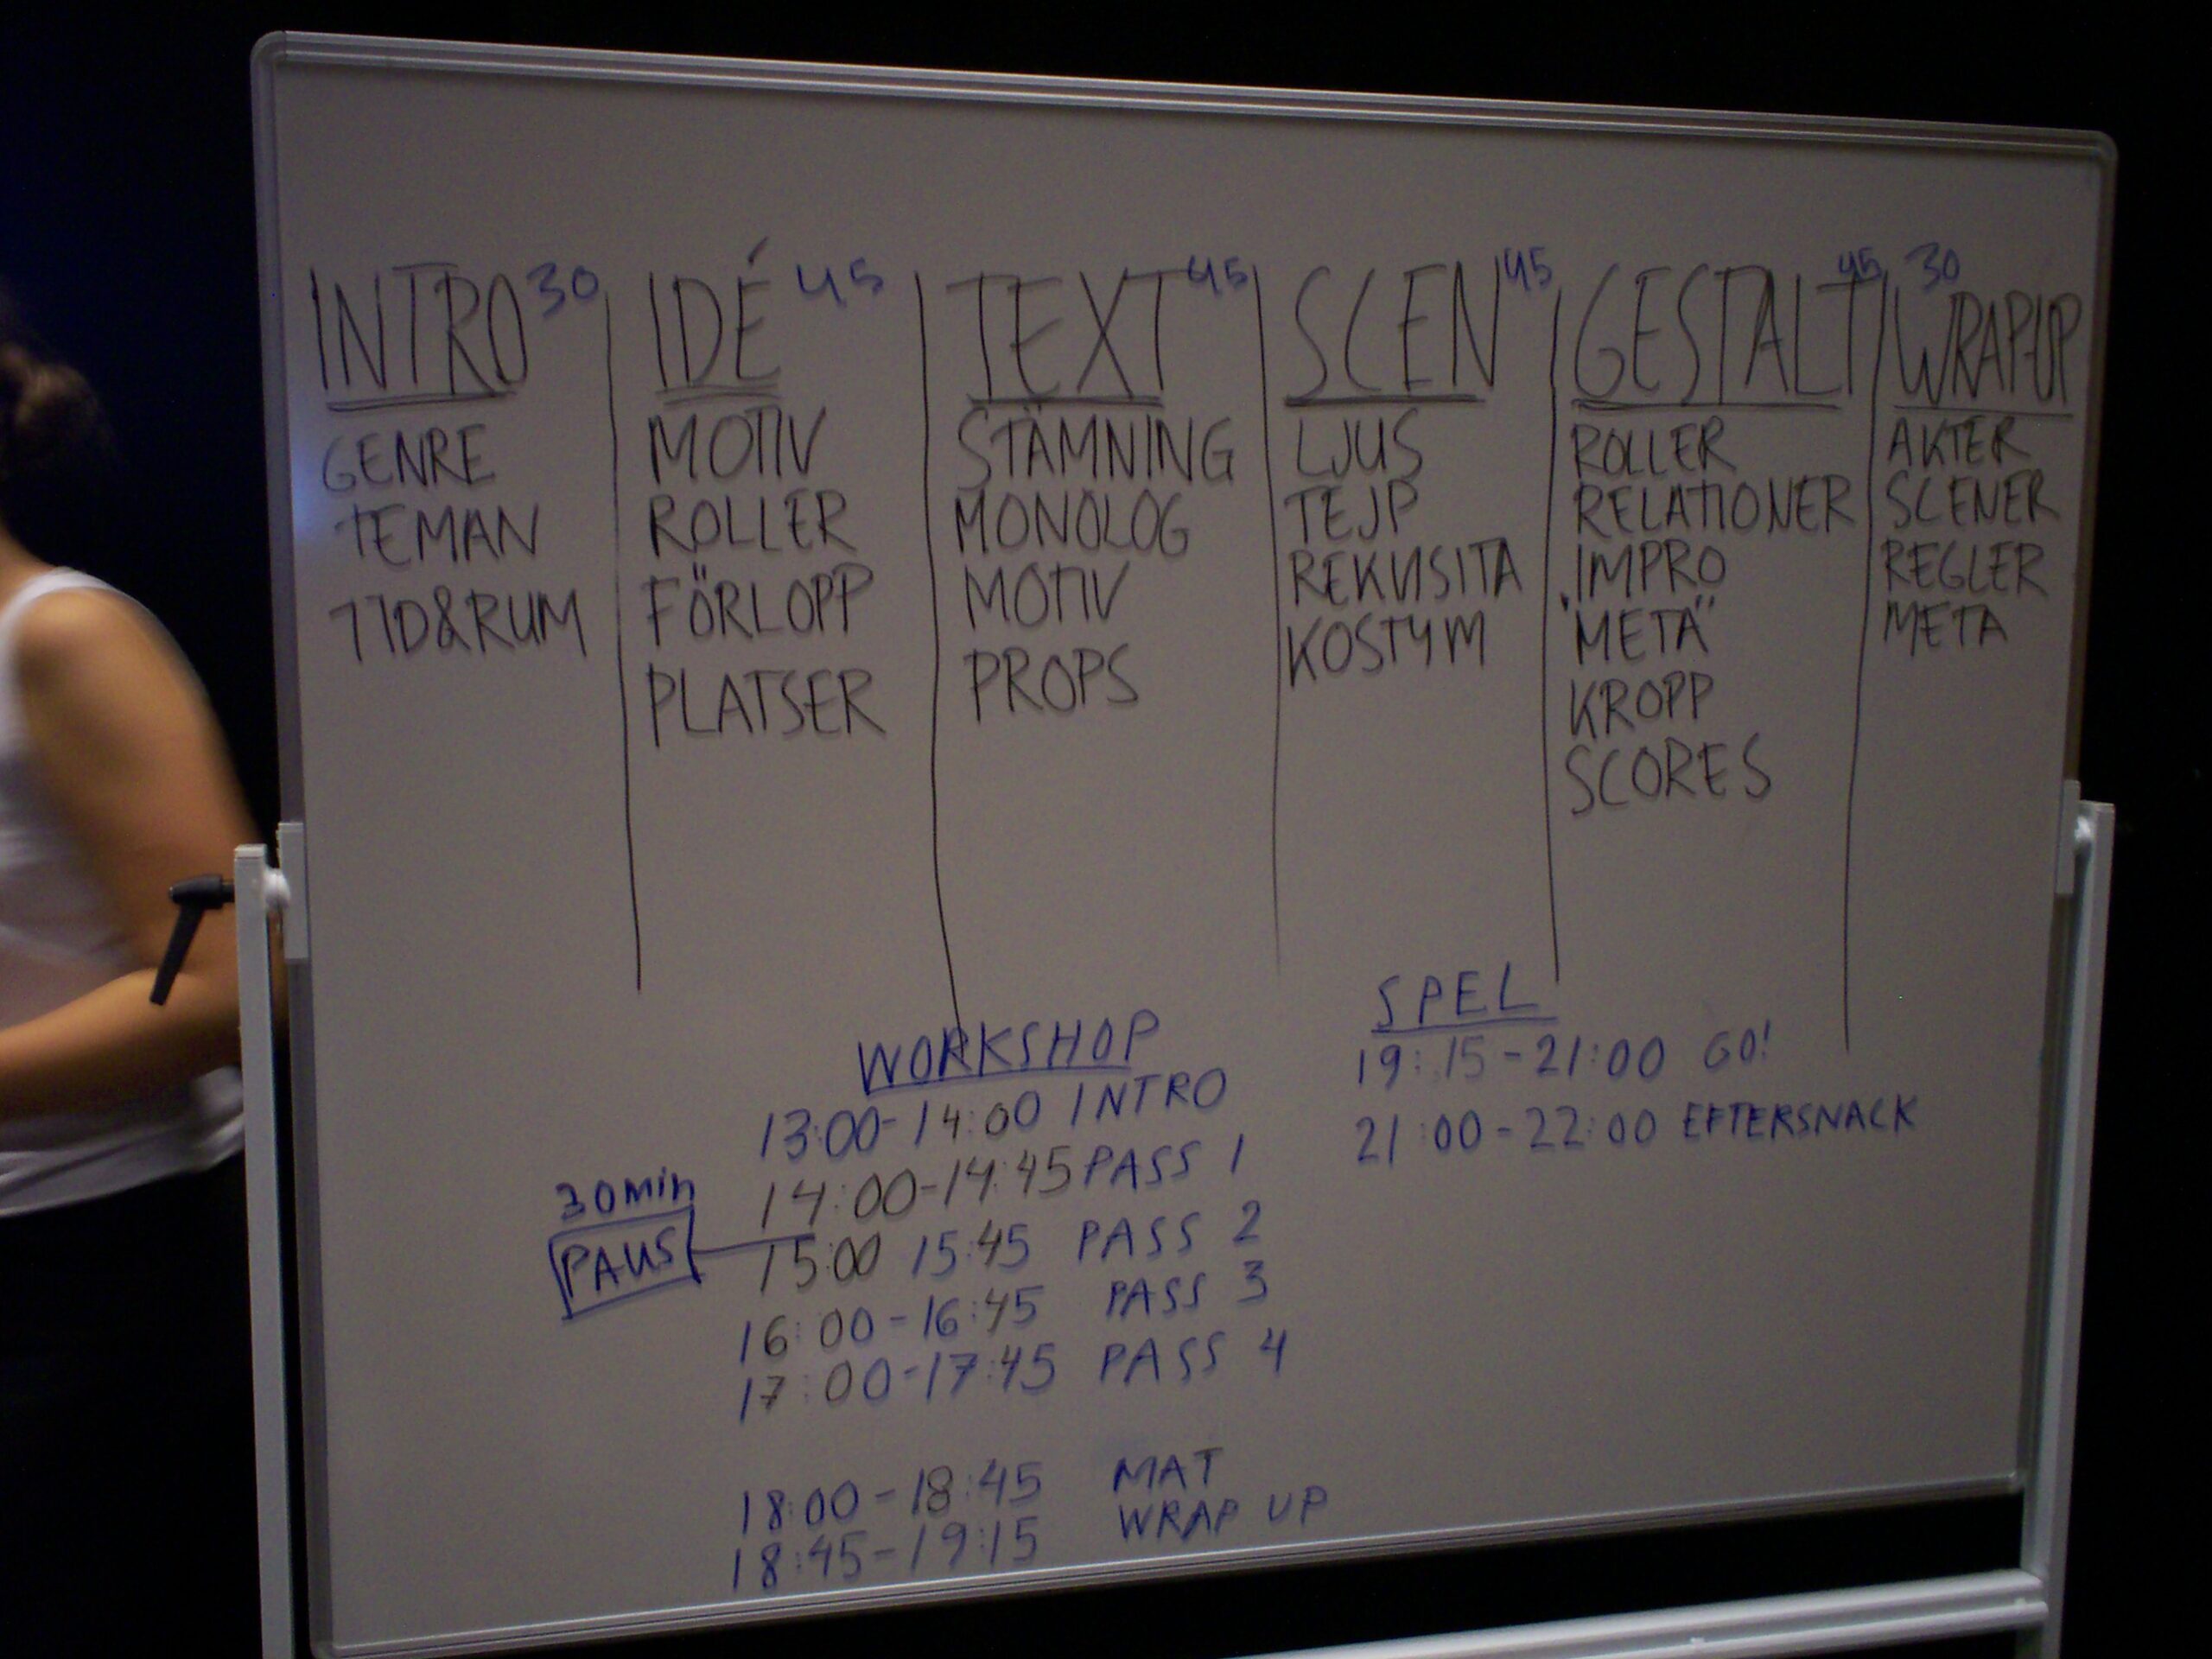 INTRO 30
GENRE
TEMAN
TID&RUM
IDÉ 45
MOTIV
ROLLER
FÖRLOPP
PLATSER
TEXT 45
STÄMNING
MONOLOG
MOTIV
PROPS
SCEN 45
LJUS
TEJP
REKVISITA
KOSTYM
GESTALT 45
ROLLER
RELATIONER
IMPRO
"META"
KROPP
SCORES
30
WRAP-UP
AKTER
SCENER
REGLER
META
WORKSHOP
13:00-14:00 INTRO
14:00-14:45 PASS 1
30min
PAUS
15:00 15:45 PASS 2
16:00-16:45 PASS 3
17:00-17:45 PASS 4
18:00-18:45 MAT
18:45-19:15 WRAP UP
SPEL
19:15-21:00 GO!
21:00-22:00 EFTERSNACK